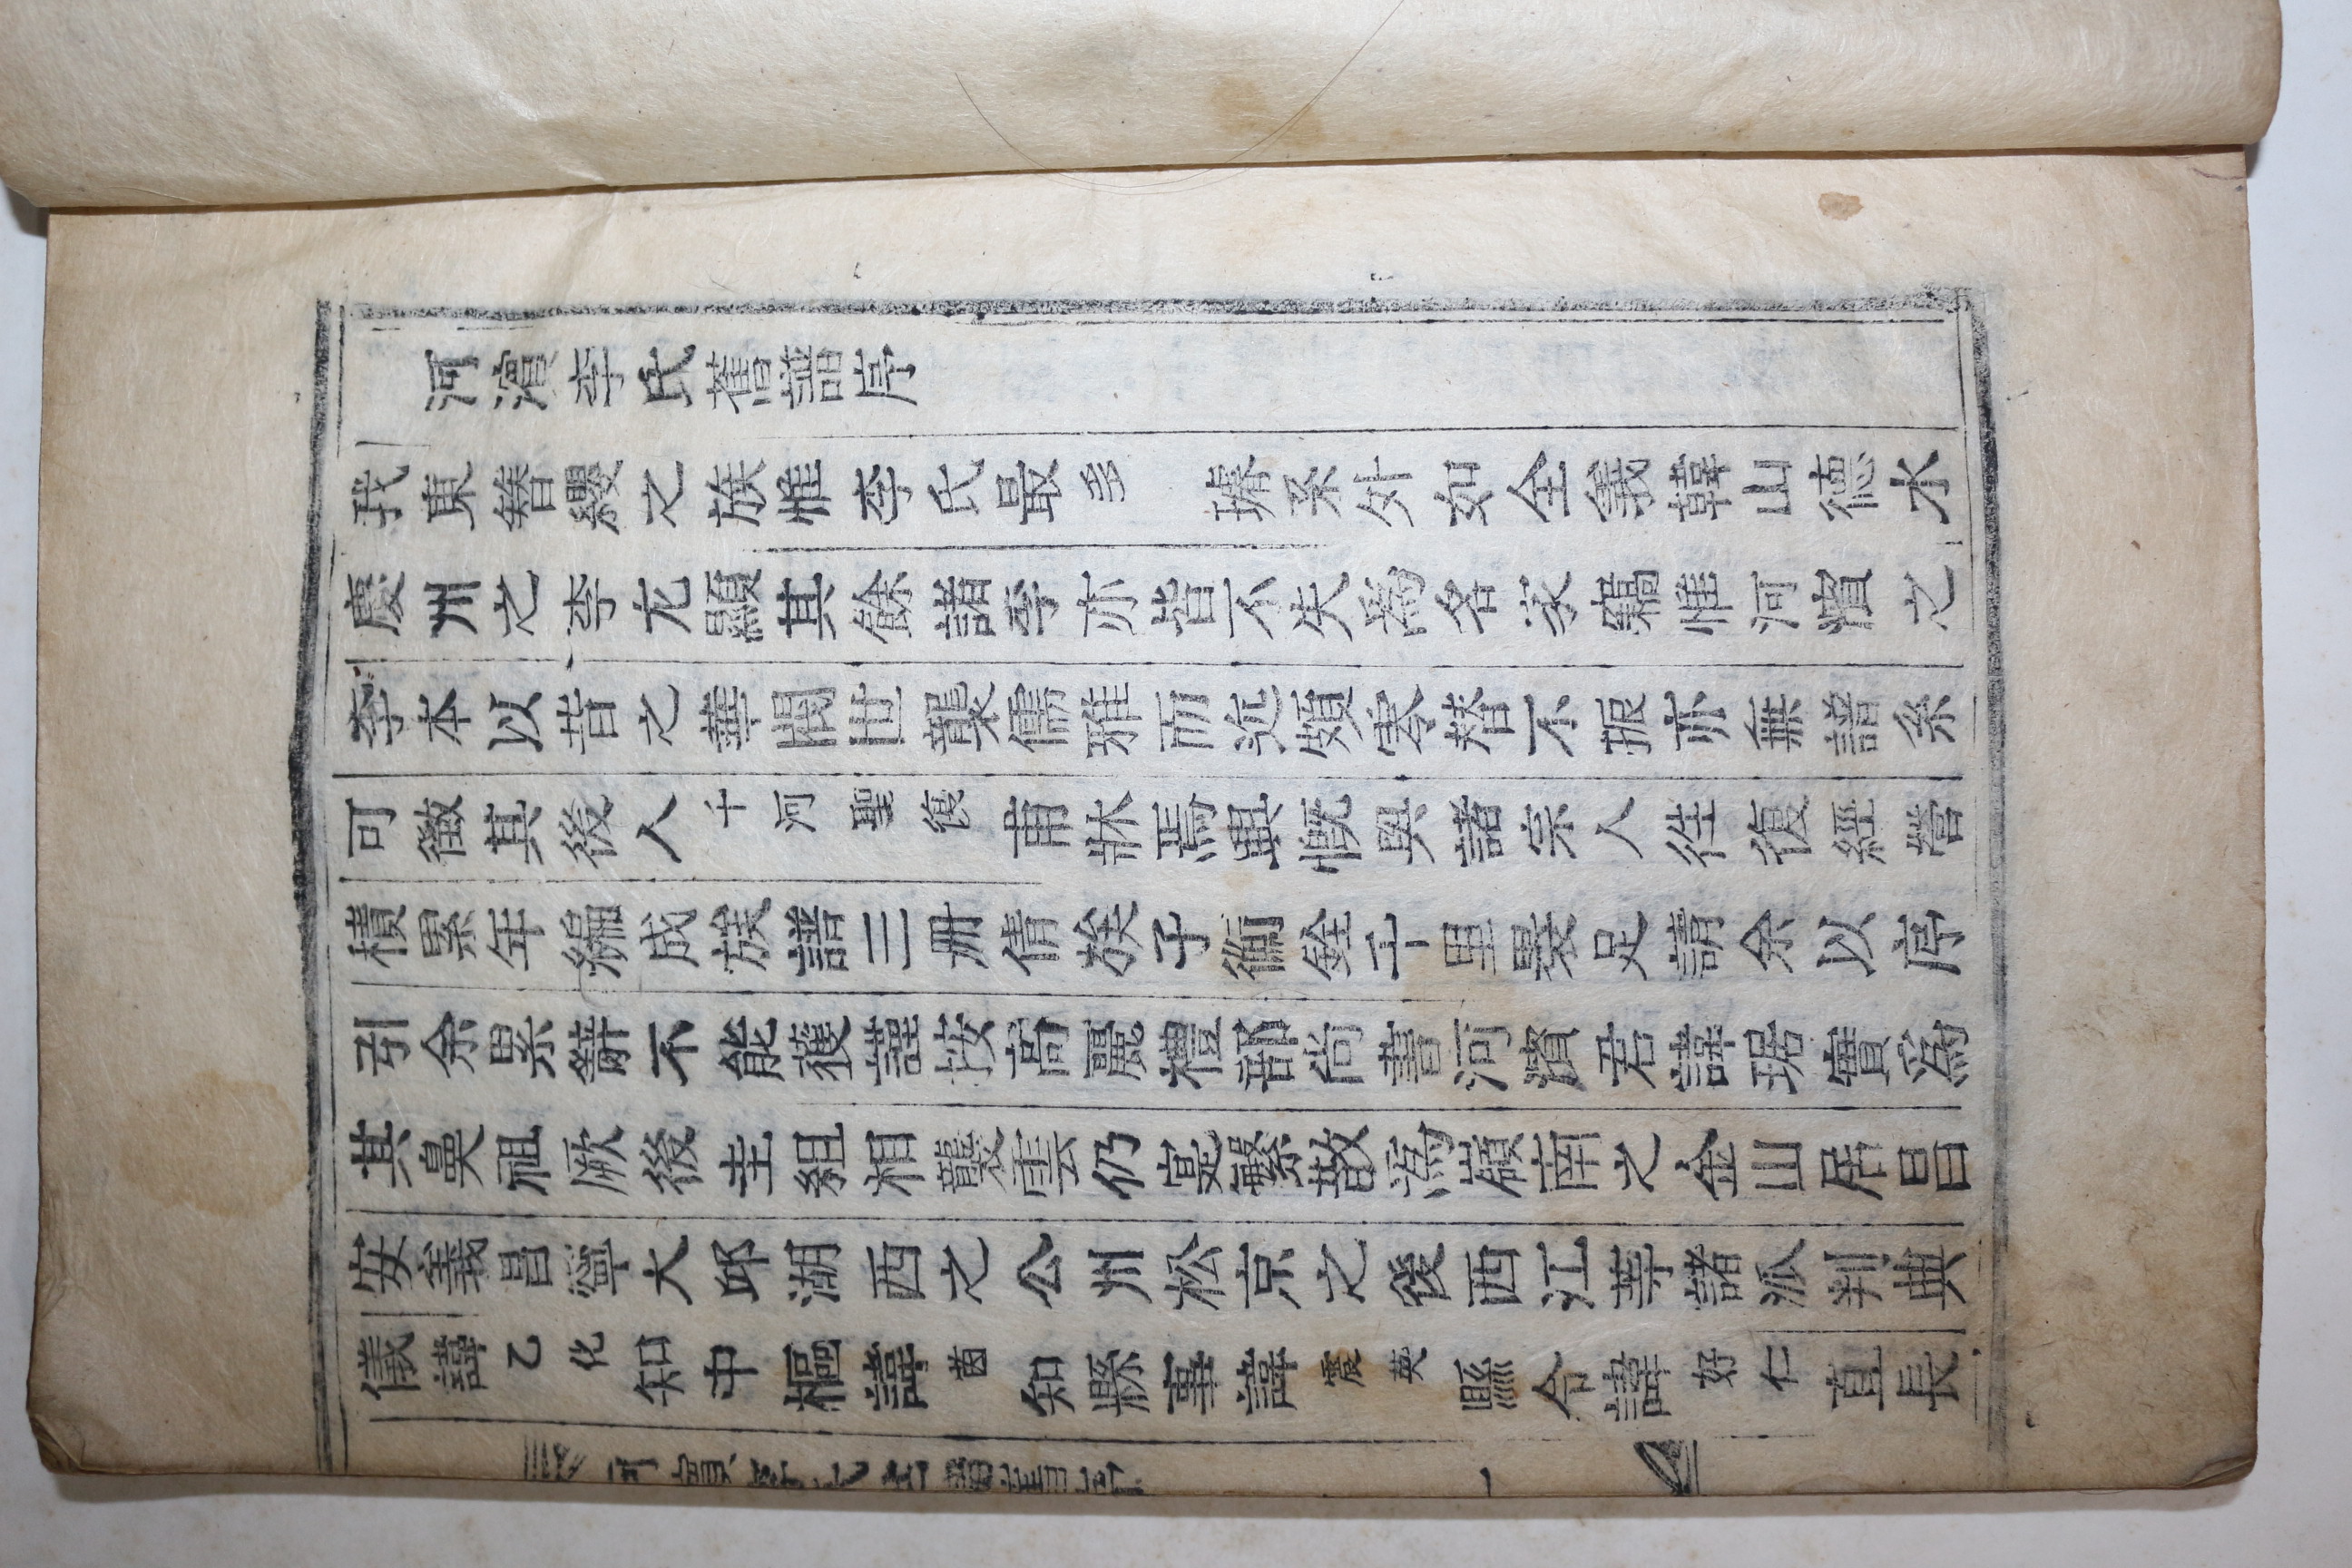 河濱李氏舊譜序
我東簪纓之族惟李氏最多 璿系外如全義韓山德水
慶州之李尤顯其餘諸李亦皆不失爲名家獨惟河濱之
李本以昔之華閥世襲儒雅而近頗寒替不振亦無譜系
可徵其後人 河聖 焉興慨與諸宗人徃復經營
積累年編成族譜三册倩族子 銓千里裂足請余以序
引余累辭不能獲謹按高麗禮部尚書河濱君諱琚實爲
其鼻祖厥後圭組相襲雲仍寔繁散爲嶺南之金山居昌
安義昌寧大邱湖西之公州松京之後西江等諸派判典
儀諱乙化知中樞諱茵知縣事諱震英縣令諱好仁直長